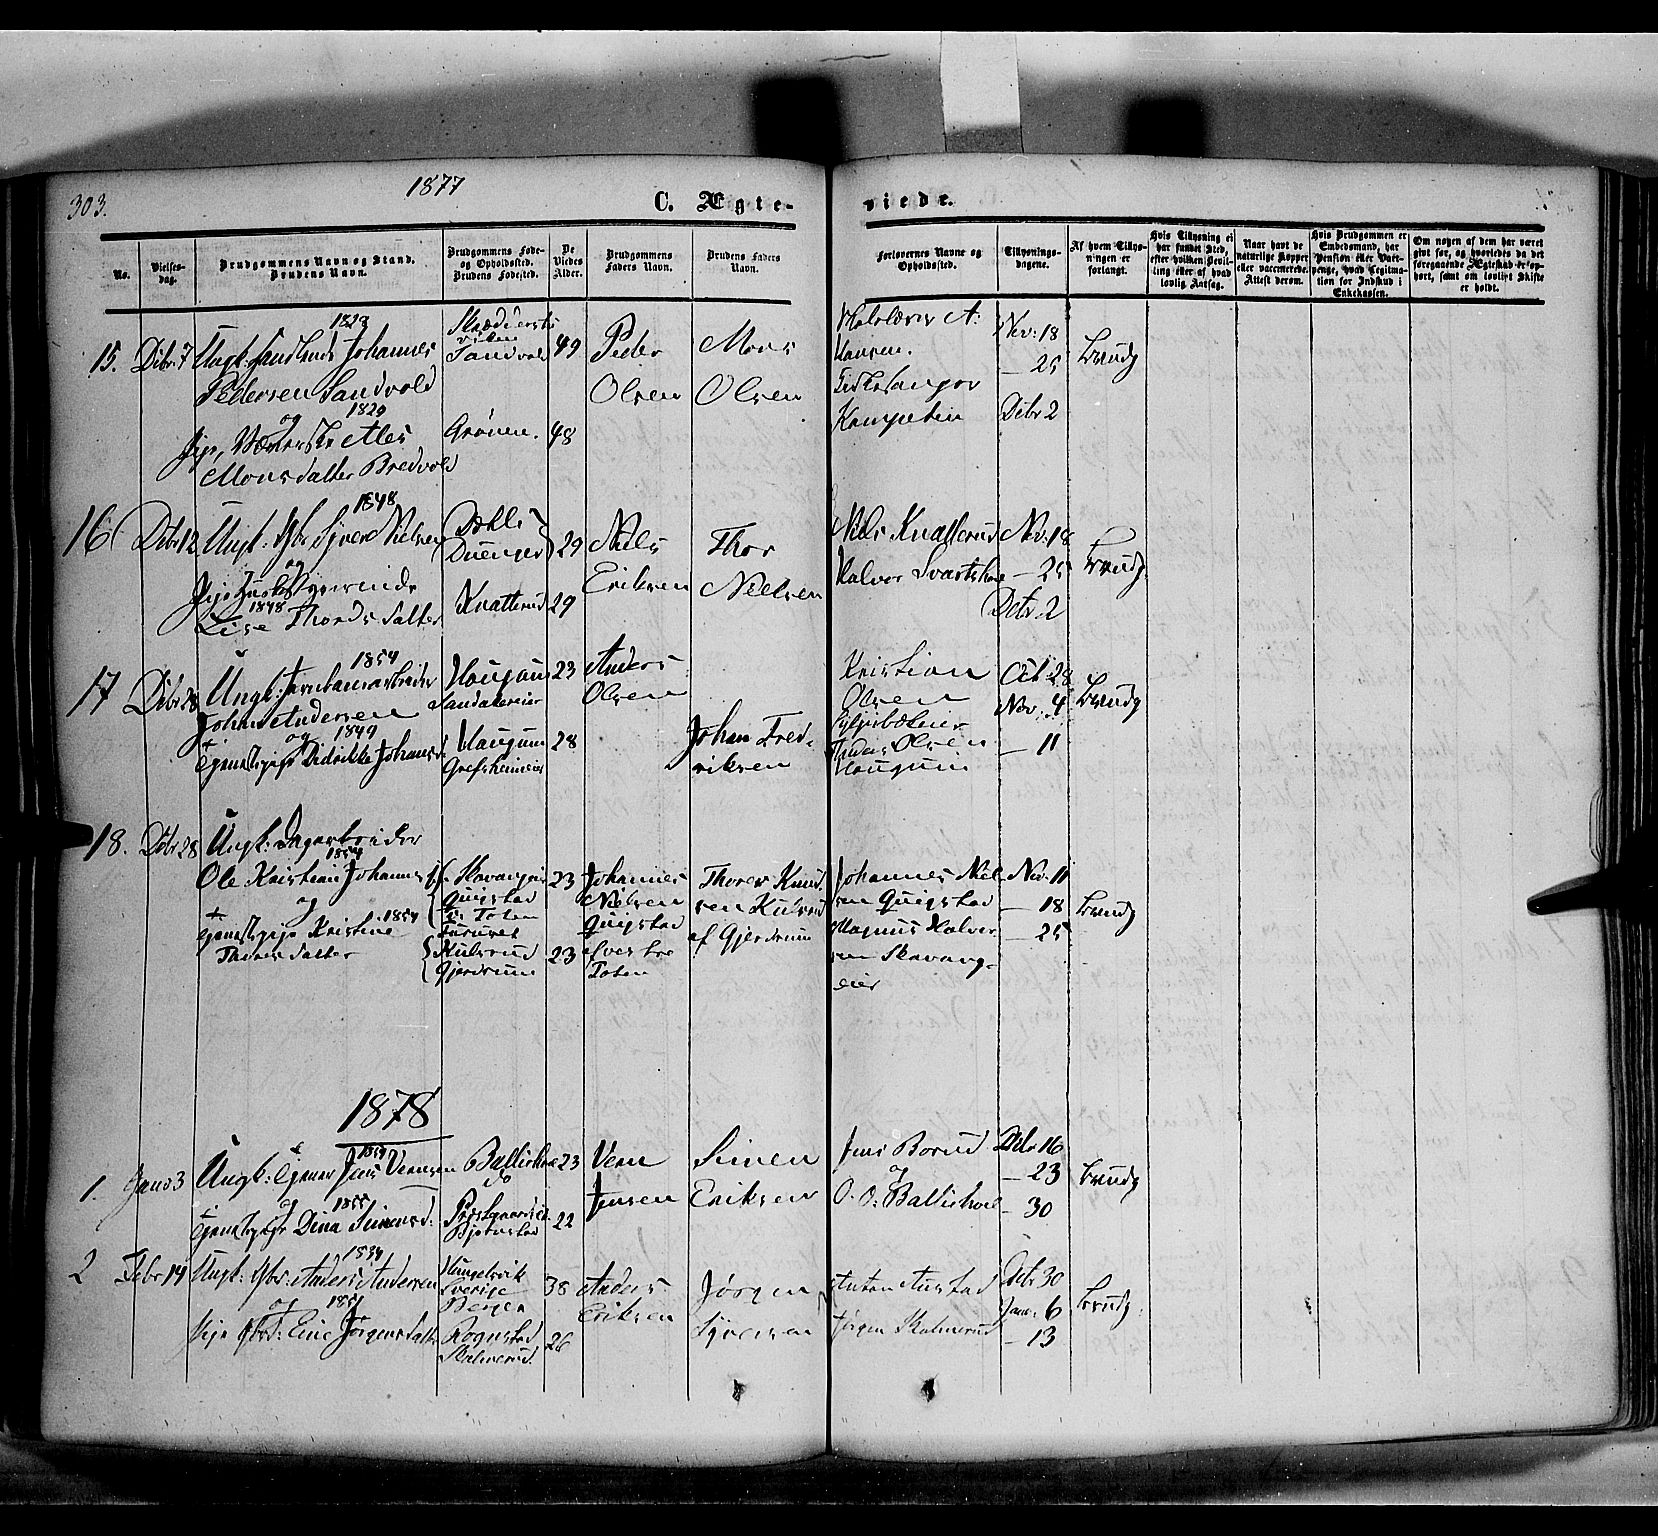 303.
1877
C. Ægte-
viede.
No.
Vielses-
dag.
Brudgommens Navn og Stand.
Brudens Navn.
Brudgommens Føde-
og Opholdssted.
Brudens Fødested.
De
Viedes
Alder.
Brudgommens
Faders Navn.
Brudens Faders
Navn.
Forlovernes Navne og
Opholdssted.
Tillysnings-
dagene.
Af hvem Tillys-
ningen er
forlangt.
Hvis Tillysning ei
har fundet Sted,
efter hvilken Bevil-
ling eller af hvad
lovlig Aarsag.
Naar havt de
naturlige Kopper
eller vaccinerede.
Attest derom.
Hvis Brudgommen er
Embedsmand, har
Pension eller Vart-
penge, hvad Legitima-
tion for Indskud i
Enkekassen.
Om nogen af dem har været
gift før, og hvorledes da det
foregaaende Ægteskab er op-
hørt, samt om lovligt Skifte
er holdt.
1828
15. Dcbr 7 Ungk: Johannes
Pedersen Sandvold
og 1829
Mons datter Bredvold
Sandvold
Grønen.
49
48
Peder
Olsen
Mons
Olsen
Skolelærer A:
Hansen.
Kirkesanger
Nov: 18
— 25
Dcbr 2
Brudg
1848
16 Dcbr 12 Ungk: Gbr Syver Nielsen
og
1848
Lise Thords datter
Dæhli
29
Knatterud 29
Niels
Eriksen
Thor
Nielsen
Niels Knatterud
Halvor
Nov. 18
— 25
Dcbr. 2
Brudg
1854
17 Dcbr 28 Ungk: Jernbanearbeider
Johan Andersen
og 1849
Tjenestpige Didrikke Johansd
Haugum 23
Haugum 28
Anders
Olsen
Johan Fred-
riksen
Kristian
Olsen
Anders Olsen
Haugum
Oct 28
Nov. 4
— 11
Brudg
18. Dcbr 28 Ungk: Dagarbeider
1854
Ole Kristian Johannes
og
1854
Tjenestpige Kristine
Thores datter
Quigstad
V. Toten
Kulsrud
Gjerdrum
23
23
Johannes
Nielsen
Quigstad
af vestre
Toten
Thorer Knud-
sen Kulsrud
af Gjerdrum
Johannes Niel-
sen Quigstad
Magnus Halvor-
sen Skavang-
eier
Nov. 11
— 18
— 25
Brudg
1878
1. Janr 3 Ungk: Tjener Jens
og 1855
Tjenestpige Dina Simensd:
Ballishol 23
do
22
Jensen
Simen
Eriksen
Jens Borud
og
O. O. Ballishol
Dcbr 16
— 23
— 30
Brudg
2 Febr 14 Ungk: Gbr: Anders Andersen
og 1851
Pige Gbd: Jørgensdatter
Sverige
Rognstad
Skolmerud
38
26
Anders
Eriksen
Jørgen
Syversen
Anton
Jørgen Skolmerud
30
Janr. 6
— 13
Brudg.